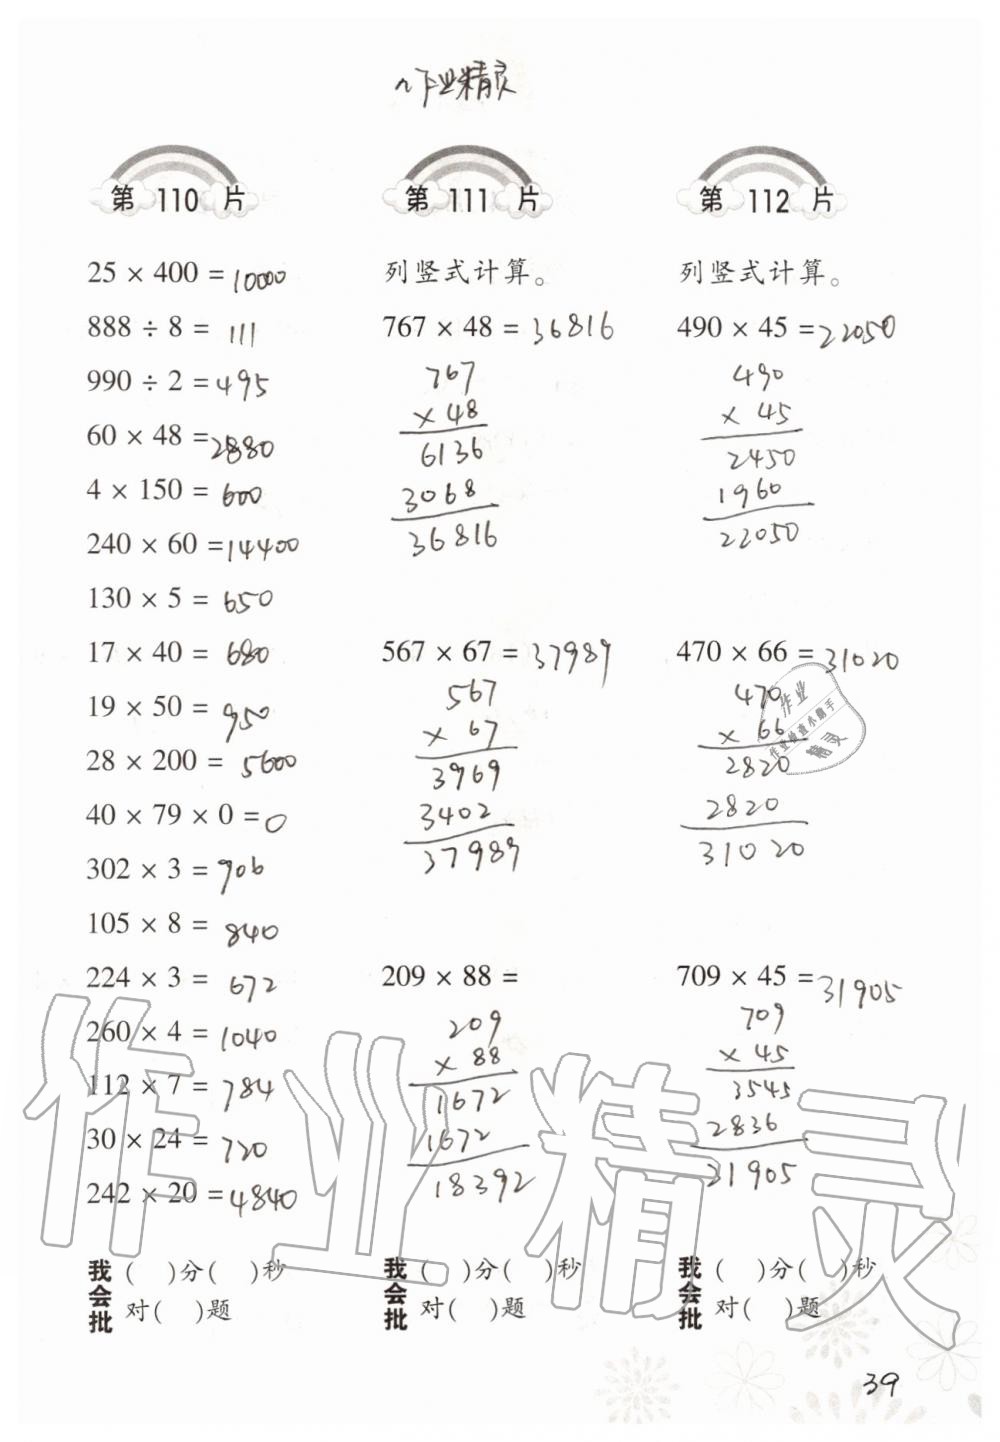 作业精灵
第 110 片
25 × 400 = 10000
888 ÷ 8 = 111
990 ÷ 2 = 495
60 × 48 = 2880
4 × 150 = 600
240 × 60 = 14400
130 × 5 = 650
17 × 40 = 680
19 × 50 = 950
28 × 200 = 5600
40 × 79 × 0 = 0
302 × 3 = 906
105 × 8 = 840
224 × 3 = 672
260 × 4 = 1040
112 × 7 = 784
30 × 24 = 720
242 × 20 = 4840
我会批
( )分( )秒
对( )题
第 111 片
列竖式计算。
767 × 48 = 36816
767
× 48
6136
3068
36816
567 × 67 = 37989
567
× 67
3969
3402
37989
209 × 88 =
209
× 88
1672
1672
18392
我会批
( )分( )秒
对( )题
第 112 片
列竖式计算。
490 × 45 = 22050
490
× 45
2450
1960
22050
470 × 66 = 31020
470
× 66
2820
2820
31020
作业
作业检查小帮手
精灵
709 × 45 = 31905
709
× 45
3545
2836
31905
我会批
( )分( )秒
对( )题
作业精灵
39